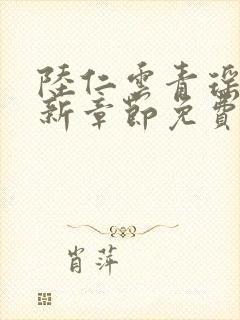 陸仁雲青瑤
新章節免費
肖萍